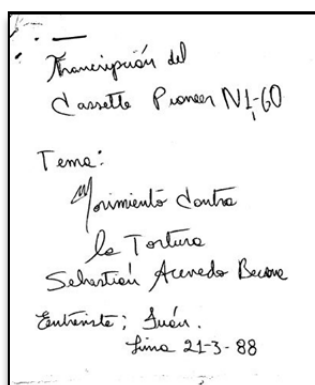 Transcripción del
Cassette Pioneer N1-60
Tema:
Movimiento Contra
la Tortura
Sebastián Acevedo Becerra
Entrevista; Juán.
Lima 21-3-88